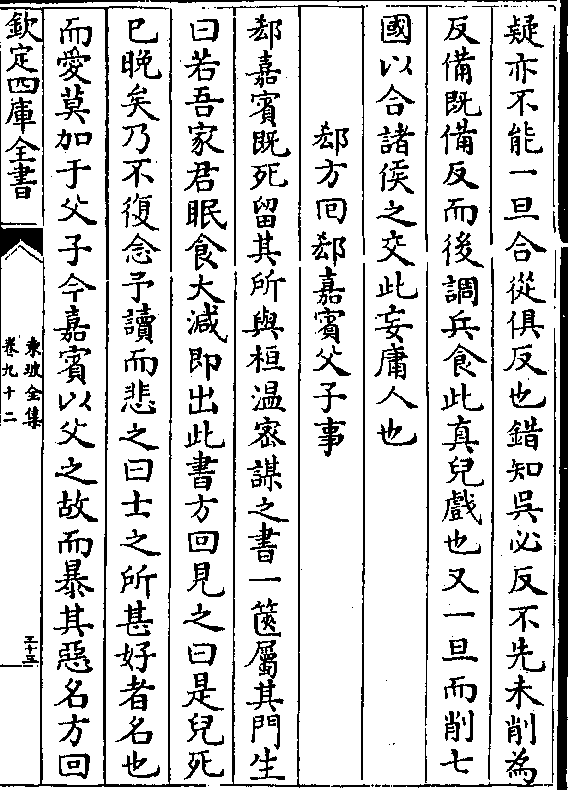 疑亦不能一旦合從俱反也錯知吳必反不先未削為
反備既備反而後調兵食此真兒戲也又一旦而削七
國以合諸侯之交此妄庸人也
郄方回郄嘉賓父子事
郄嘉賓既死留其所與桓溫宻謀之書一篋屬其門生
曰若吾家君眠食大減即出此書方回見之曰是兒死
已晚矣乃不復念予讀而悲之曰士之所甚好者名也
而愛莫加于父子今嘉賓以父之故而暴其惡名方回
欽定四庫全書
東坡全集
卷九十二
三十三